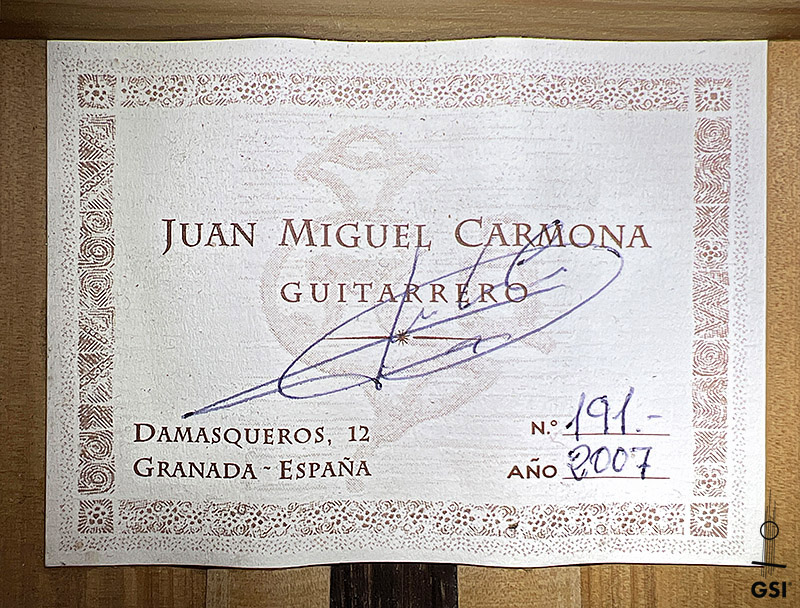 JUAN MIGUEL CARMONA
GUITARRERO
DAMASQUEROS, 12
GRANADA - ESPAÑA
N.º 191.-
AÑO 2007
GSI